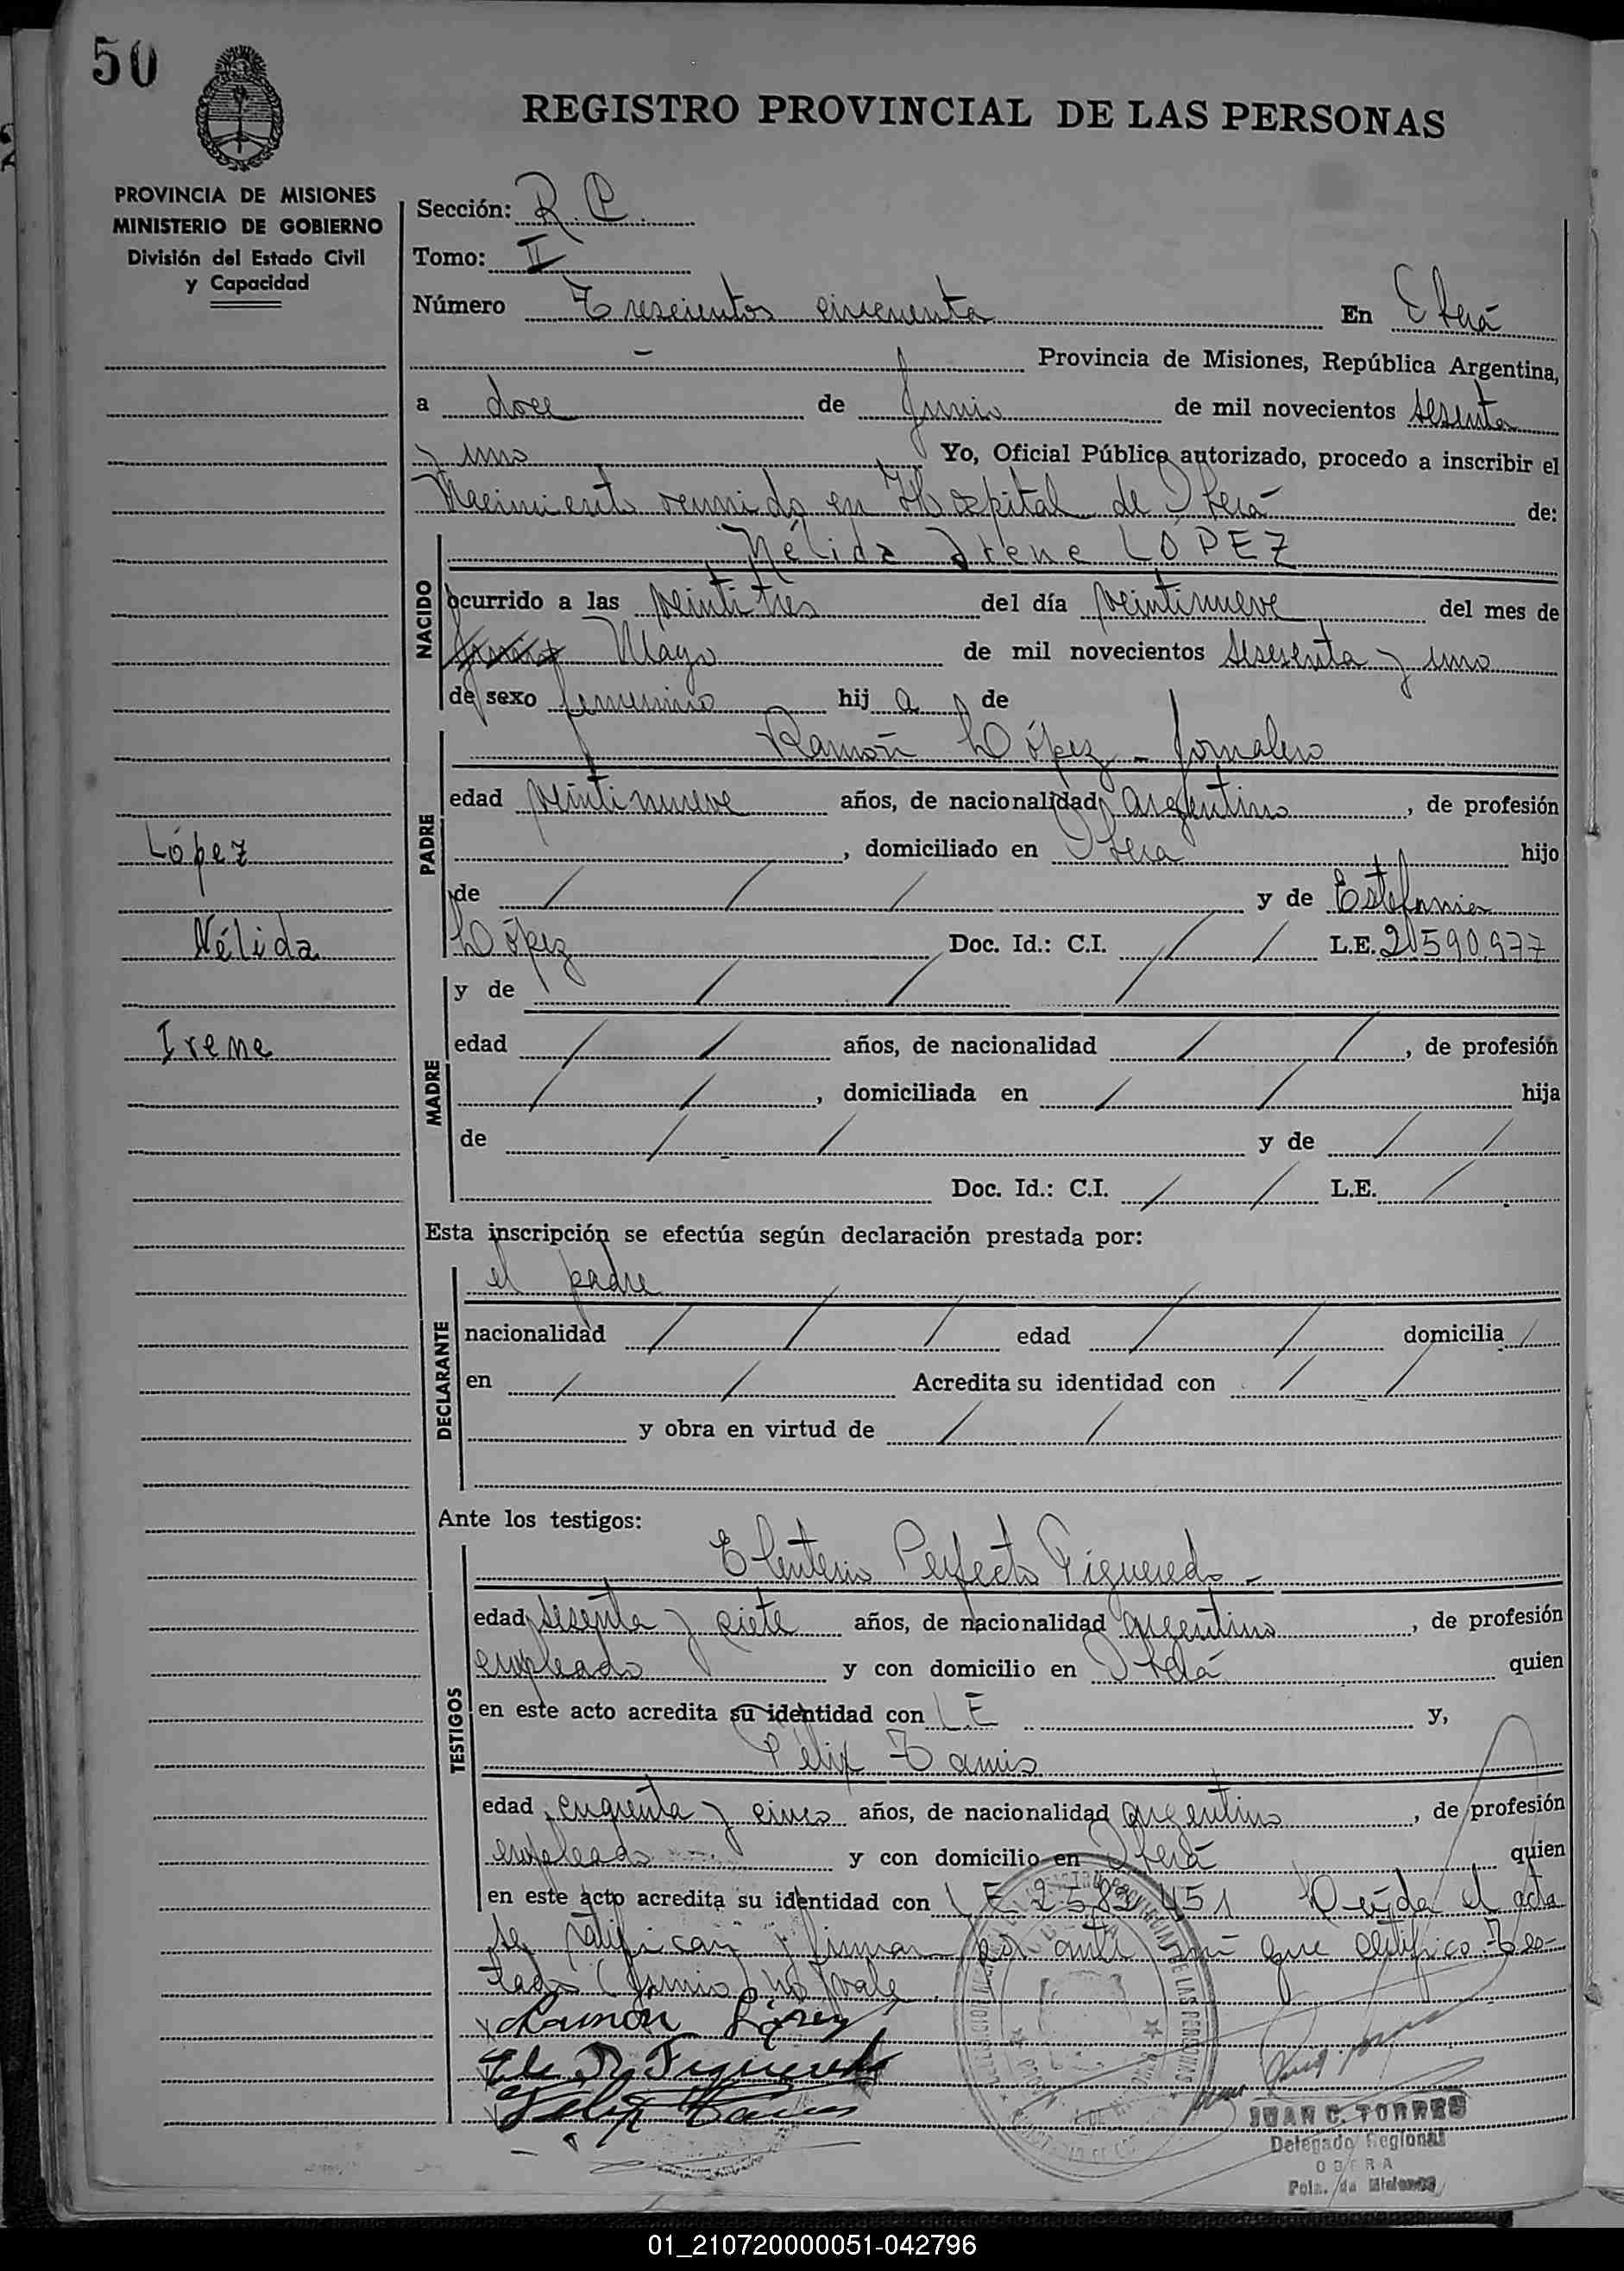 50
REGISTRO PROVINCIAL DE LAS PERSONAS
PROVINCIA DE MISIONES
MINISTERIO DE GOBIERNO
División del Estado Civil
y Capacidad
Sección: R. C.
Tomo: II
Número Trescientos cincuenta En Oberá
Provincia de Misiones, República Argentina,
a doce de Junio de mil novecientos sesenta
y uno Yo, Oficial Público autorizado, procedo a inscribir el
Nacimiento en Hospital de Oberá de:
Nélida Irene LÓPEZ
NACIDO
ocurrido a las veintitres del día veintinueve del mes de
Mayo de mil novecientos sesenta y uno
de sexo femenino hij a de
Ramón López - Jornalero
PADRE
edad veintinueve años, de nacionalidad argentino, de profesión
, domiciliado en Oberá hijo
de / / / y de Estefania
López Doc. Id.: C.I. / / L.E. 2.590.977
López
Nélida
Irene
MADRE
y de / / /
edad / / años, de nacionalidad / /, de profesión
/ /, domiciliada en / / hija
de / / y de / /
Doc. Id.: C.I. / / L.E. /
Esta inscripción se efectúa según declaración prestada por:
DECLARANTE
el padre
nacionalidad / / / edad / / domicilia /
en / / Acredita su identidad con / /
y obra en virtud de / /
Ante los testigos:
TESTIGOS
Eleuterio Perfecto Figueredo -
edad sesenta y siete años, de nacionalidad argentino, de profesión
empleado y con domicilio en Oberá quien
en este acto acredita su identidad con L E y,
Félix Ramis
edad cincuenta y cinco años, de nacionalidad argentino, de profesión
empleado y con domicilio en Oberá quien
en este acto acredita su identidad con L E 2582451 Leída el acta
se ratifican y firman por ante mí que certifico. Tes-
tado (Junio) no vale
Ramón López
Ele P. Figueredo
Felix
JUAN C. TORRES
Delegado Regional
OBERA
Pcia. de Misiones
01_210720000051-042796